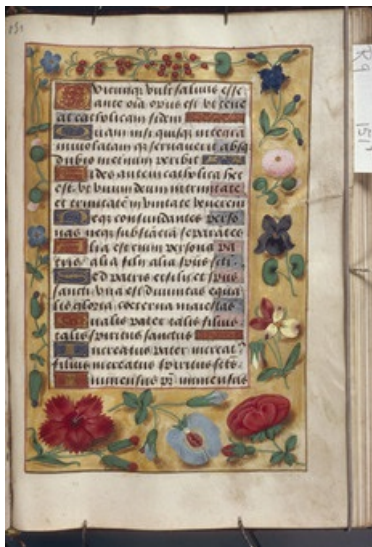 151
R9
151r
Quicunq; vult saluus esse
ante oīa opus est vt tene
at catholicam fidem
Quam nisi quisq; integrā
inuiolatam q; seruauerit absq;
dubio in eternum peribit
Fides autem catholica hec
est vt vnum deum in trinitate
et trinitatē in vnitate veneremur
Neq; confundentes perso
nas neq; substāciā separātes
Alia est enim persona pa
tris alia filii alia spūs sctī
Sed patris et filii et spūs
sancti vna est diuinitas equa
lis gloria coeterna maiestas
Qualis pater talis filius
talis spiritus sanctus
Increatus pater increat9
filius increatus spiritus sctūs
Immensus pr̄ immensus